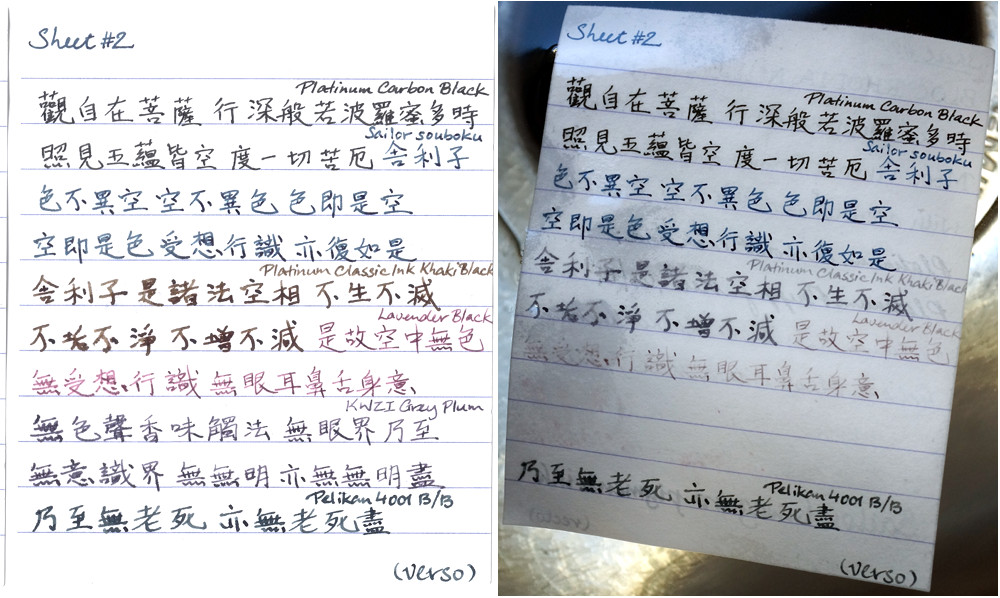 Sheet #2
Platinum Carbon Black
觀自在菩薩 行深般若波羅蜜多時
Sailor souboku
照見五蘊皆空 度一切苦厄 舍利子
色不異空 空不異色 色即是空
空即是色 受想行識 亦復如是
Platinum Classic Ink Khaki Black
舍利子 是諸法空相 不生不滅
Lavender Black
不垢不淨 不增不減 是故空中無色
無受想行識 無眼耳鼻舌身意
KWZI Gray Plum
無色聲香味觸法 無眼界 乃至
無意識界 無無明 亦無無明盡
Pelikan 4001 B/B
乃至無老死 亦無老死盡
(verso)
Sheet #2
Platinum Carbon Black
觀自在菩薩 行深般若波羅蜜多時
Sailor souboku
照見五蘊皆空 度一切苦厄 舍利子
色不異空 空不異色 色即是空
空即是色 受想行識 亦復如是
Platinum Classic Ink Khaki Black
舍利子 是諸法空相 不生不滅
Lavender Black
不垢不淨 不增不減 是故空中無色
無受想行識 無眼耳鼻舌身意
Pelikan 4001 B/B
乃至無老死 亦無老死盡
(verso)